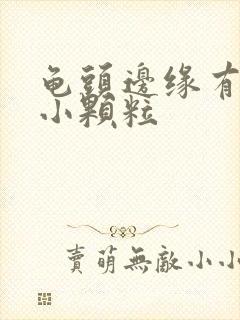 龟頭邊缘有
小顆粒
賣萌無敵小小